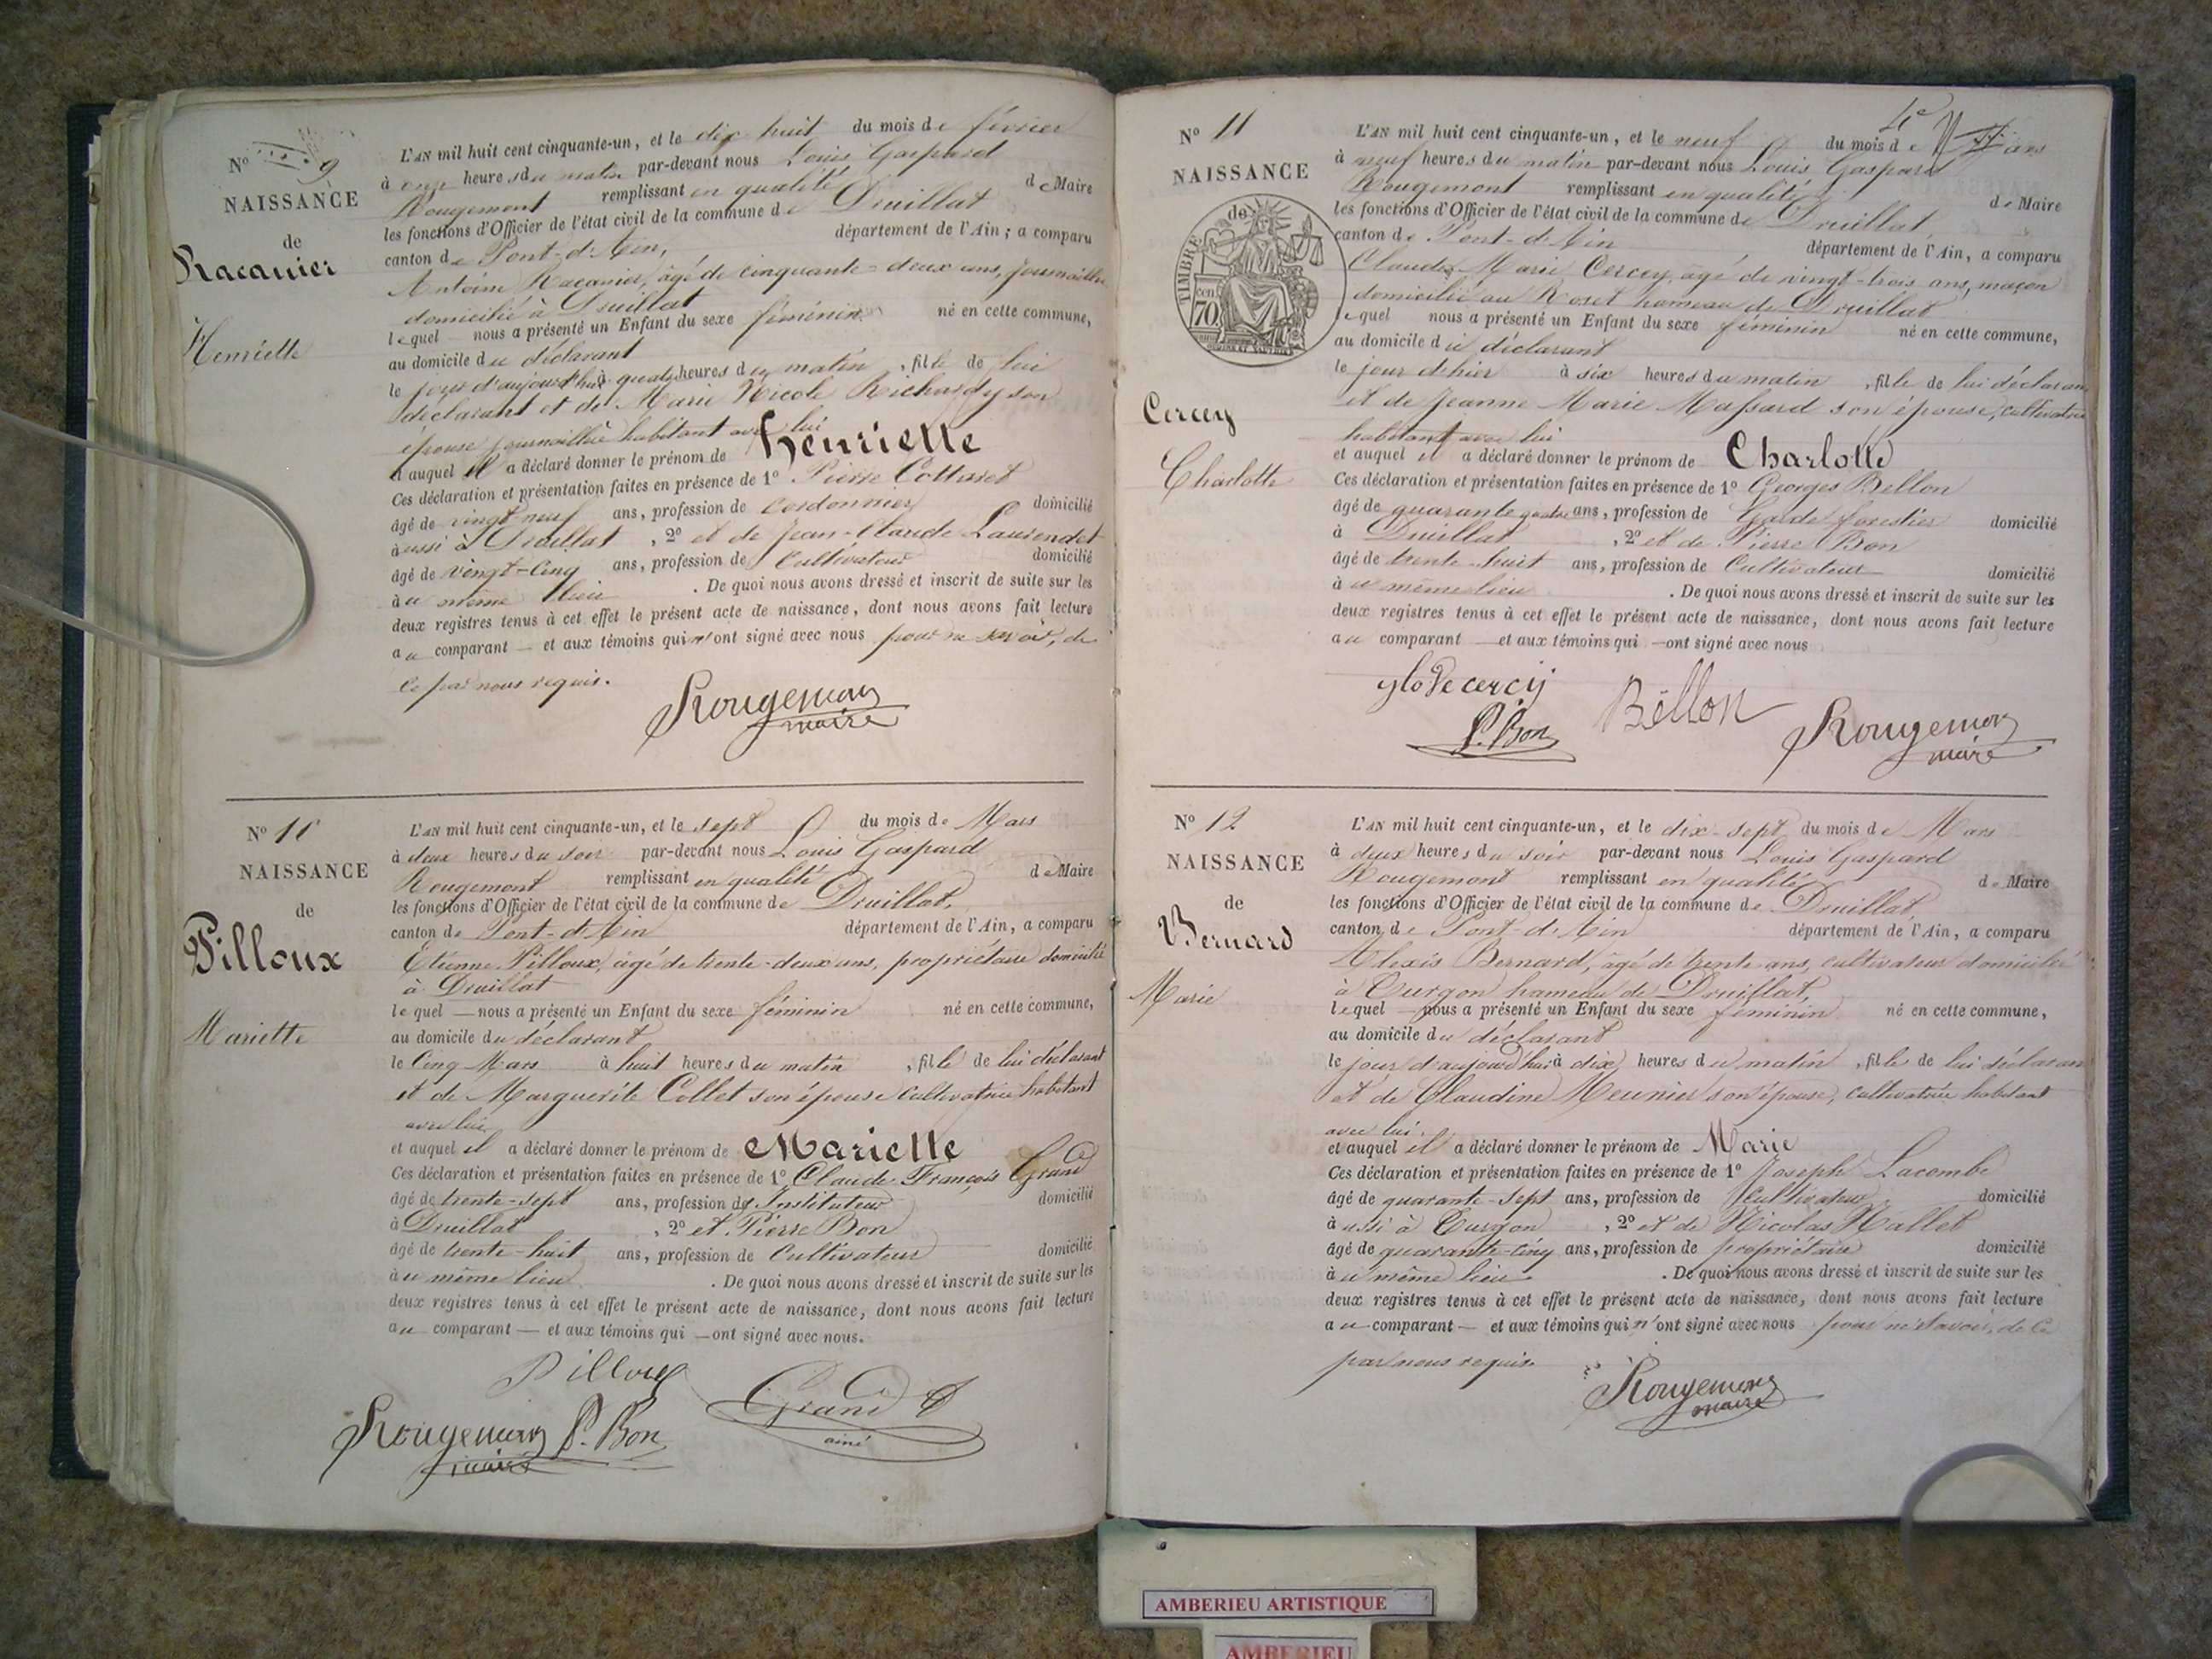 N° 9
NAISSANCE
de
Racanier
Henriette
L'AN mil huit cent cinquante-un, et le dix huit du mois de février
à onze heures du matin par-devant nous Louis Gaspard
Rougemont remplissant en qualité de Maire
les fonctions d'Officier de l'état civil de la commune de Druillat
canton de Pont-d'Ain, département de l'Ain ; a comparu
Antoine Racanier, âgé de cinquante-deux ans, journallier
domicilié à Druillat
lequel nous a présenté un Enfant du sexe féminin né en cette commune,
au domicile du déclarant
le jour d'aujourd'hui à quatre heures du matin, fille de lui
déclarant et de Marie Nicole Richardy son
épouse journallière habitant avec lui
et auquel il a déclaré donner le prénom de Henriette
Ces déclaration et présentation faites en présence de 1° Pierre
âgé de vingt neuf ans, profession de Cordonnier domicilié
aussi à Druillat, 2° et de Jean-Claude
âgé de vingt-cinq ans, profession de Cultivateur domicilié
au même lieu. De quoi nous avons dressé et inscrit de suite sur les
deux registres tenus à cet effet le présent acte de naissance, dont nous avons fait lecture
au comparant — et aux témoins qui n'ont signé avec nous pour ne savoir, de
ce par nous requis.
Rougemont
maire
N° 10
NAISSANCE
de
Pilloux
Mariette
L'AN mil huit cent cinquante-un, et le sept du mois de Mars
à deux heures du soir par-devant nous Louis Gaspard
Rougemont remplissant en qualité de Maire
les fonctions d'Officier de l'état civil de la commune de Druillat,
canton de Pont-d'Ain département de l'Ain, a comparu
Etienne Pilloux, âgé de trente-deux ans, propriétaire domicilié
à Druillat
lequel — nous a présenté un Enfant du sexe féminin né en cette commune,
au domicile du déclarant
le Cinq Mars à huit heures du matin, fille de lui déclarant
et de Marguerite Collet son épouse cultivatrice habitant
avec lui
et auquel il a déclaré donner le prénom de Mariette
Ces déclaration et présentation faites en présence de 1° Claude François Grand
âgé de trente-sept ans, profession d'Instituteur domicilié
à Druillat, 2° et Pierre Bon
âgé de trente-huit ans, profession de Cultivateur domicilié
au même lieu. De quoi nous avons dressé et inscrit de suite sur les
deux registres tenus à cet effet le présent acte de naissance, dont nous avons fait lecture
au comparant — et aux témoins qui — ont signé avec nous.
Pilloux
Rougemont P. Bon Grand
maire ainé
N° 11
NAISSANCE
de
TIMBRE
70
Cercey
Charlotte
L'AN mil huit cent cinquante-un, et le neuf du mois de Mars
à neuf heures du matin par-devant nous Louis Gaspard
Rougemont remplissant en qualité de Maire
les fonctions d'Officier de l'état civil de la commune de Druillat,
canton de Pont-d'Ain département de l'Ain, a comparu
Claude Marie Cercey, âgé de vingt-trois ans, maçon
domicilié au Roset hameau de Druillat
lequel nous a présenté un Enfant du sexe féminin né en cette commune,
au domicile du déclarant
le jour d'hier à six heures du matin, fille de lui déclarant
et de Jeanne Marie Massard son épouse, cultivatrice
habitant avec lui
et auquel il a déclaré donner le prénom de Charlotte
Ces déclaration et présentation faites en présence de 1° Georges Bellon
âgé de quarante quatre ans, profession de Garde forestier domicilié
à Druillat, 2° et de Pierre Bon
âgé de trente-huit ans, profession de Cultivateur domicilié
au même lieu. De quoi nous avons dressé et inscrit de suite sur les
deux registres tenus à cet effet le présent acte de naissance, dont nous avons fait lecture
au comparant — et aux témoins qui — ont signé avec nous
cercy Bellon
P. Bon Rougemont
maire
N° 12
NAISSANCE
de
Bernard
Marie
L'AN mil huit cent cinquante-un, et le dix-sept du mois de Mars
à deux heures du soir par-devant nous Louis Gaspard
Rougemont remplissant en qualité de Maire
les fonctions d'Officier de l'état civil de la commune de Druillat,
canton de Pont-d'Ain département de l'Ain, a comparu
Alexis Bernard, âgé de trente ans, cultivateur domicilié
à Turgon hameau de Druillat,
lequel nous a présenté un Enfant du sexe féminin né en cette commune,
au domicile du déclarant
le jour d'aujourd'hui à dix heures du matin, fille de lui déclarant
et de Claudine Meunier son épouse, cultivatrice habitant
avec lui.
et auquel il a déclaré donner le prénom de Marie
Ces déclaration et présentation faites en présence de 1° Joseph Lacombe
âgé de quarante-sept ans, profession de Cultivateur domicilié
aussi à Turgon, 2° et de Nicolas Nallet
âgé de quarante-cinq ans, profession de propriétaire domicilié
au même lieu. De quoi nous avons dressé et inscrit de suite sur les
deux registres tenus à cet effet le présent acte de naissance, dont nous avons fait lecture
au comparant — et aux témoins qui n'ont signé avec nous pour ne savoir, de ce
par nous requis
Rougemont
maire
AMBERIEU ARTISTIQUE
AMBERIEU